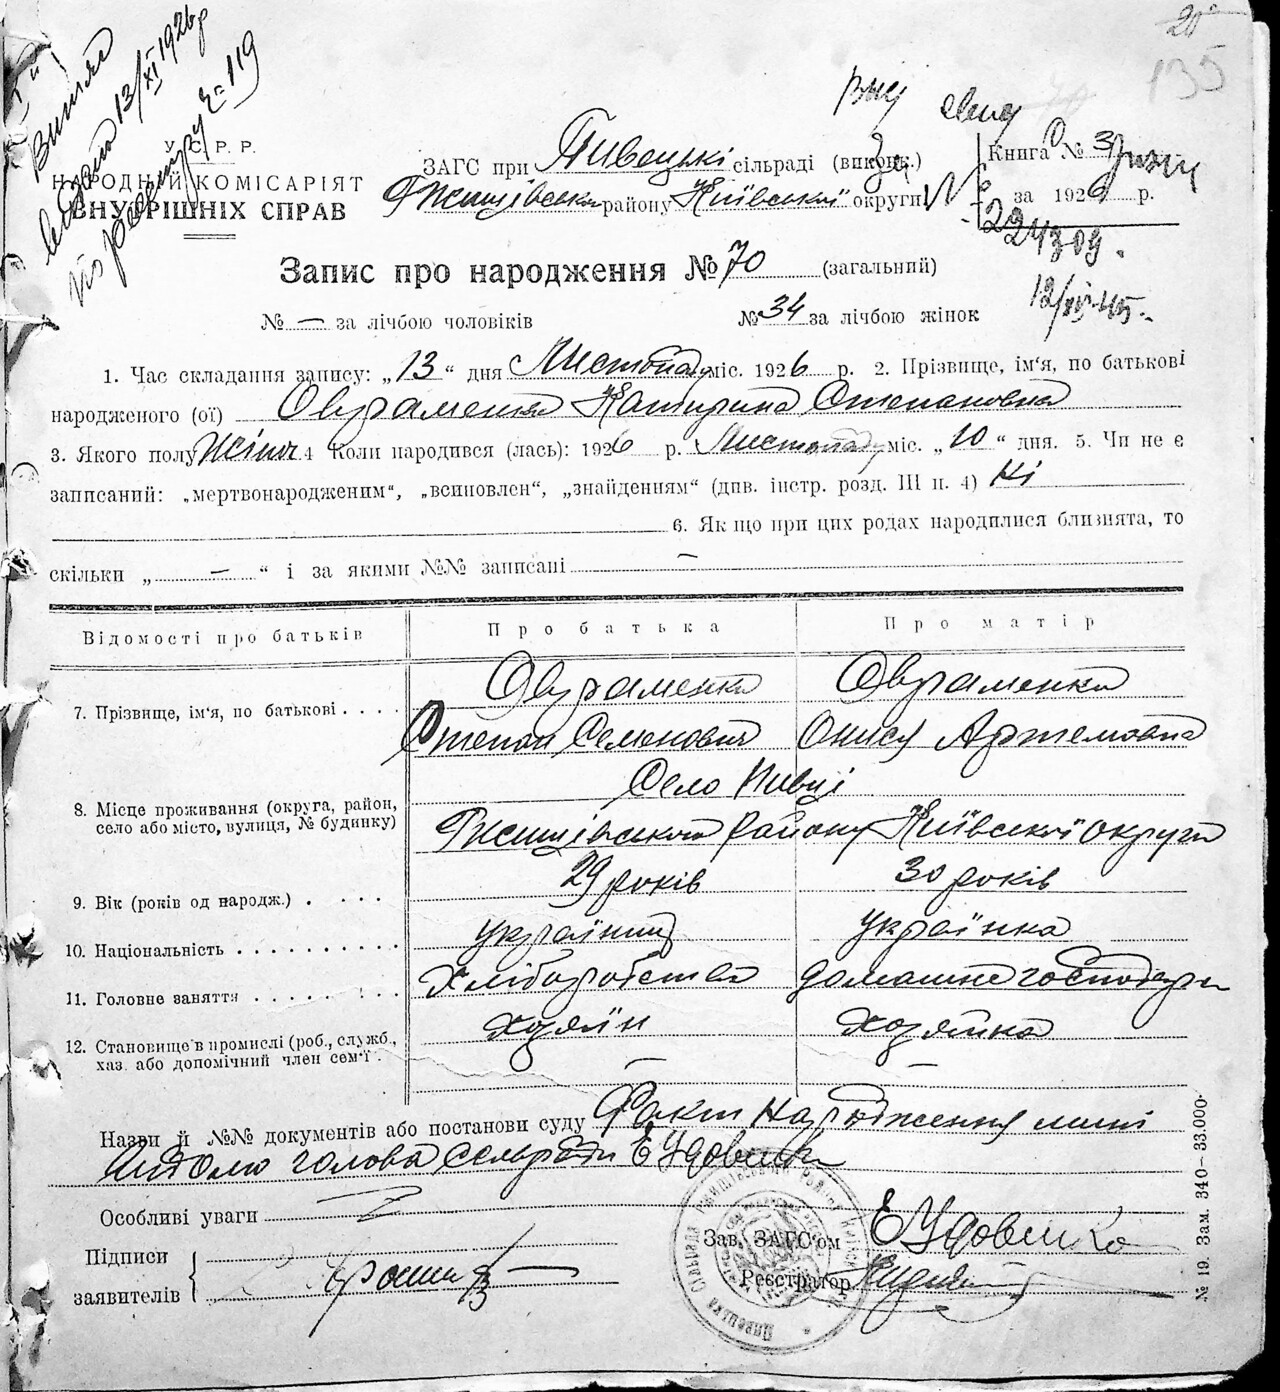 20
135
Витяг
видано 13/XI 1926 р
по реєстру № 119
У. С. Р. Р.
НАРОДНІЙ КОМІСАРІЯТ
ВНУТРІШНІХ СПРАВ
ЗАГС при Пивецькі сільраді (виконк.)
Ржищівською району Київської округи
Книга № 3
за 1926 р.
№ 224309.
12/XII-45.
Запис про народження № 70 (загальний)
№ — за лічбою чоловіків № 34 за лічбою жінок
1. Час складання запису: „13“ дня Листопаду міс. 1926 р. 2. Прізвище, ім‘я, по батькові
народженого (ої) Овраменко Катирина Степановна
3. Якого полу Жіноч. 4 Коли народився (лась): 1926 р. Листопаду міс. „10“ дня. 5. Чи не є
записаний: „мертвонародженим“, „всиновлен“, „знайденням“ (див. інстр. розд. III п. 4) Ні
6. Якщо при цих родах народилися близнята, то
скільки „ — “ і за якими №№ записані —
Відомості про батьків Про батька Про матір
Овраменко Овраменко
7. Прізвище, ім‘я, по батькові . . . . Степан Семенович Онися Артемовна
Село Пивці
8. Місце проживання (округа, район,
село або місто, вулиця, № будинку) Ржищівського Району Київської округи
9. Вік (років од народж.) . . . . 29 років 30 років
10. Національність . . . . . . . . . українець українка
11. Головне заняття . . . . . . . Хліборобство домашнє господарн
12. Становище в промислі (роб., служб.,
хаз. або допомічний член сем‘ї . хозяїн хозяйка
— —
Назви й №№ документів або постанови суду Факт народження мині
відомо голова сельради Е Удовенко
Особливі уваги
Підписи
заявителів
Зав. ЗАГС‘ом Е Удовенко
Реєстратор
№ 19. Зам. 340—33.000·